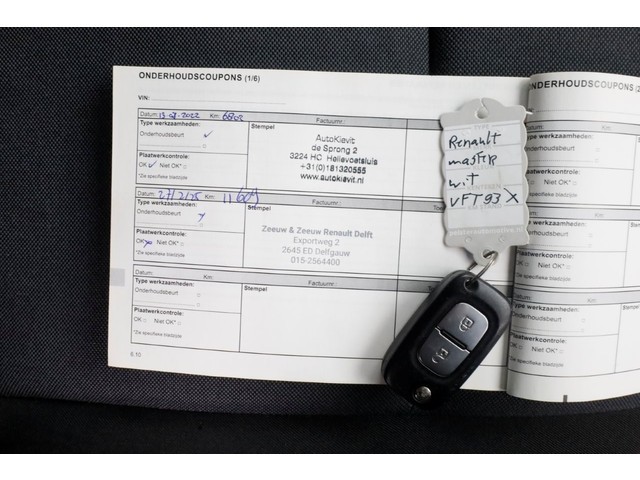 ONDERHOUDSCOUPONS (1/6)
VIN:
Datum: 13-07-2022 Km: 6802 Factuurnr.:
Type werkzaamheden: Stempel
Onderhoudsbeurt
AutoKievit
de Sprong 2
3224 HC Hellevoetsluis
+31(0)181320555
www.autokievit.nl
Plaatwerkcontrole:
OK Niet OK*
*Zie specifieke bladzijde
Datum: 27/2/25 Km: Factuurnr.:
Type werkzaamheden: Stempel
Onderhoudsbeurt
Zeeuw & Zeeuw Renault Delft
Exportweg 2
2645 ED Delfgauw
015-2564400
Plaatwerkcontrole:
OK Niet OK*
*Zie specifieke bladzijde
Datum: Km: Factuurnr.:
Type werkzaamheden: Stempel
Onderhoudsbeurt
Plaatwerkcontrole:
OK Niet OK*
*Zie specifieke bladzijde
6.10
Renault
master
wit
VFT93X
ONDERHOUDSCOUPONS (2
VIN:
Datum:
Type werkzaamheden:
Onderhoudsbeurt
Plaatwerkcontrole:
OK Niet OK*
*Zie specifieke bladzijde
Type werkzaamheden:
Onderhoudsbeurt
Plaatwerkcontrole:
OK Niet OK*
*Zie specifieke bladzijde
Datum:
Type werkzaamheden:
Onderhoudsbeurt
Plaatwerkcontrole:
OK Niet OK*
*Zie specifieke bladzijde